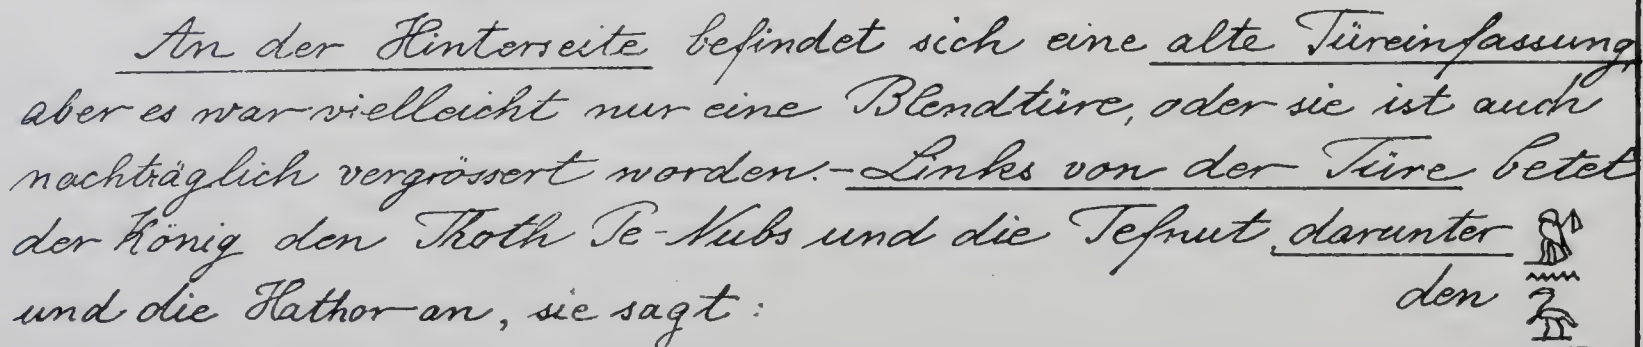 An der Hinterseite befindet sich eine alte Türeinfassung,
aber es war vielleicht nur eine Blendtüre, oder sie ist auch
nachträglich vergrössert worden.- Links von der Türe betet
der König den Thoth Pe-Nubs und die Tefnut, darunter
und die Hathor an, sie sagt: den